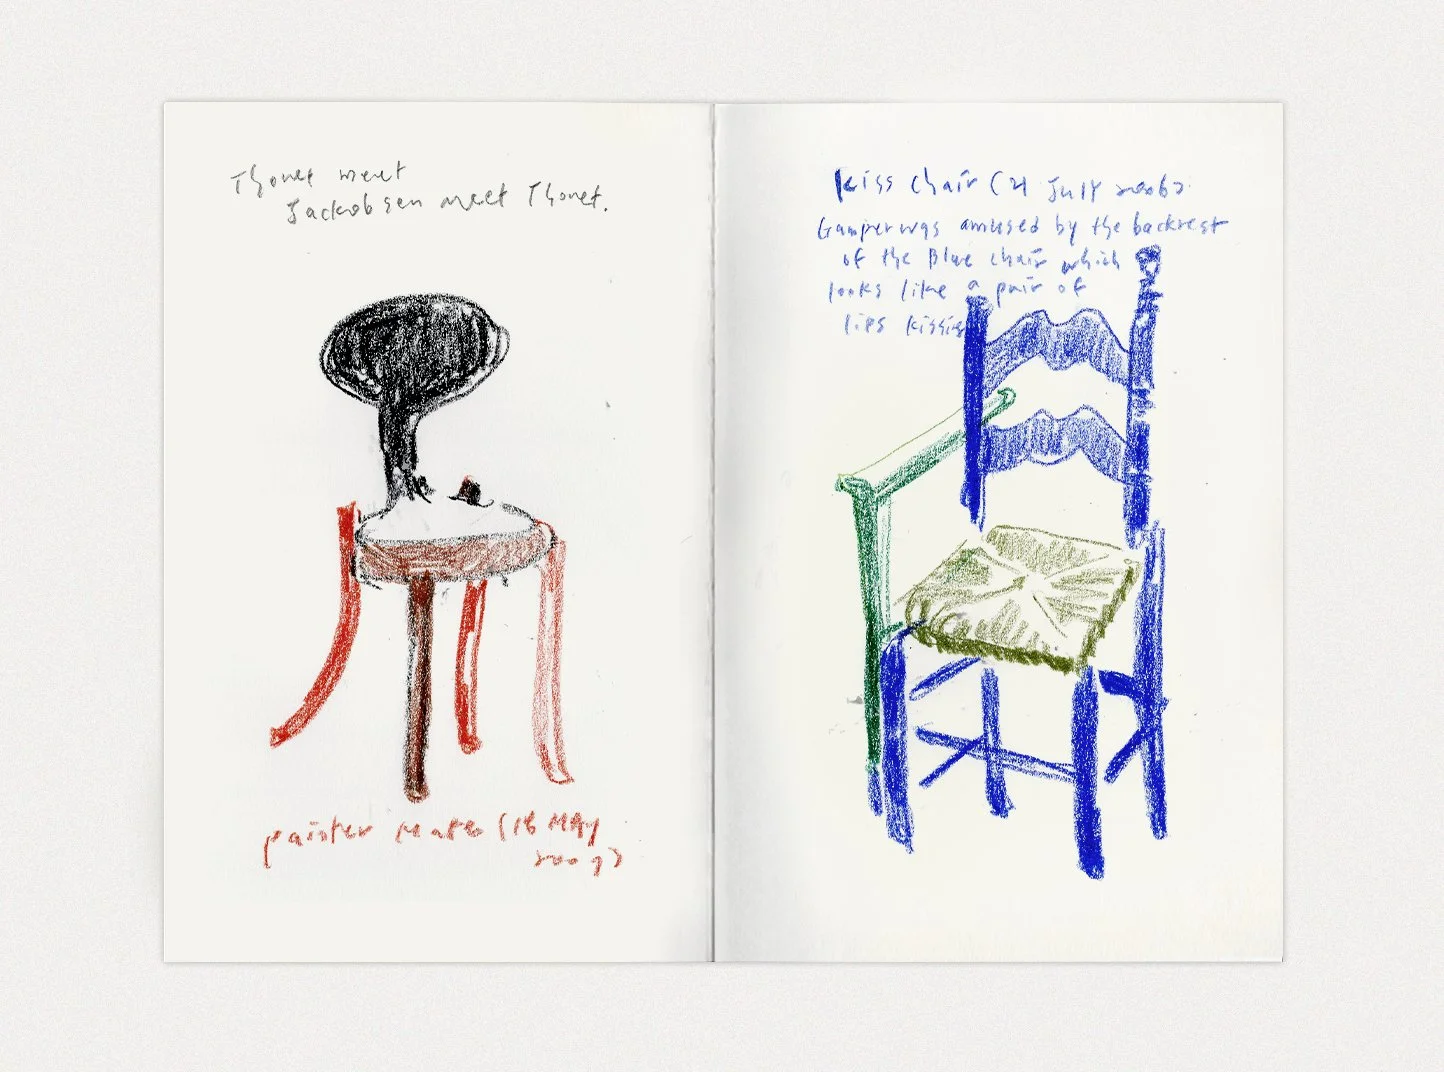 Thonet meet
Jackobsen meet Thonet.
painter mate (16 MAy
2009)
Kiss chair (21 July 2006)
Gamper was amused by the backrest
of the Blue chair which
looks like a pair of
lips kissing